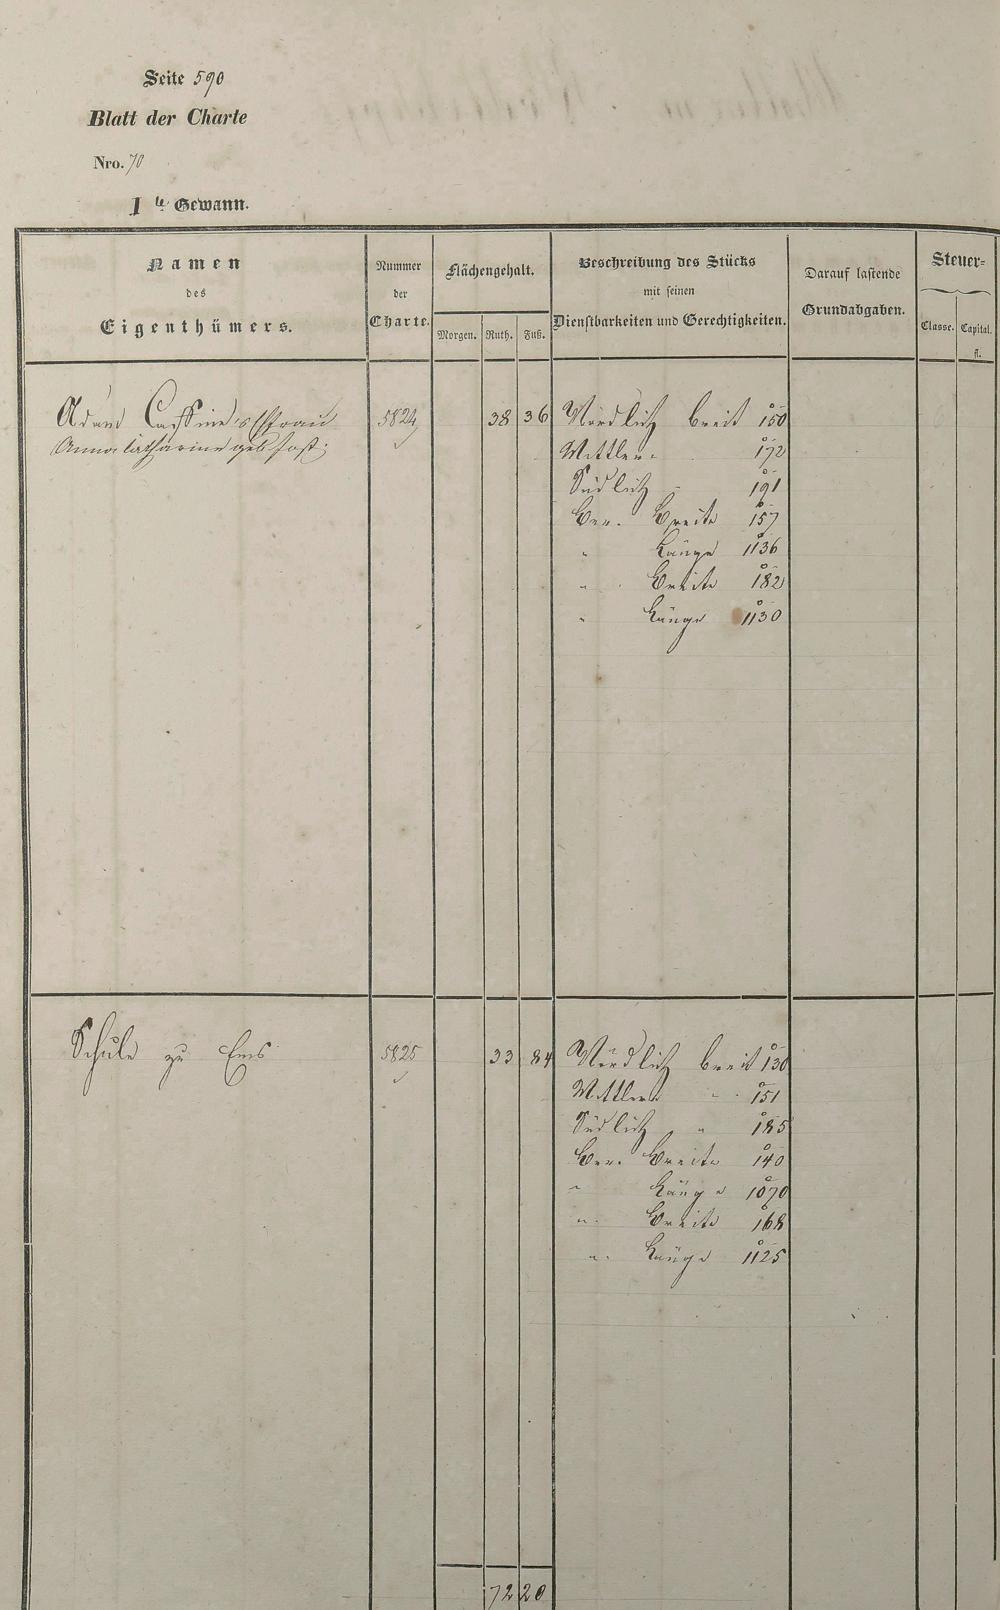 Seite 590
Blatt der Charte
Nro. 70
1te Gewann.
Namen
des
Eigenthümers.
Nummer
der
Charte.
Flächengehalt.
Morgen. Ruth. Fuß.
Beschreibung des Stücks
mit seinen
Dienstbarkeiten und Gerechtigkeiten.
Darauf lastende
Grundabgaben.
Steuer-
Classe. Capital.
fl.
Adam Frau 5824 38 36 Nördlich breit 150
Anna Catharine geb. Jost; Mittlere 172
Südlich " 191
Ber. Breite 157
" Länge 1136
" Breite 182
" Länge 1130
Schule zu Ems 5825 33 84 Nördlich breit 130
Mittlere " 151
Südlich " 185
Ber. Breite 140
" Länge 1070
" Breite 168
" Länge 1125
72 20